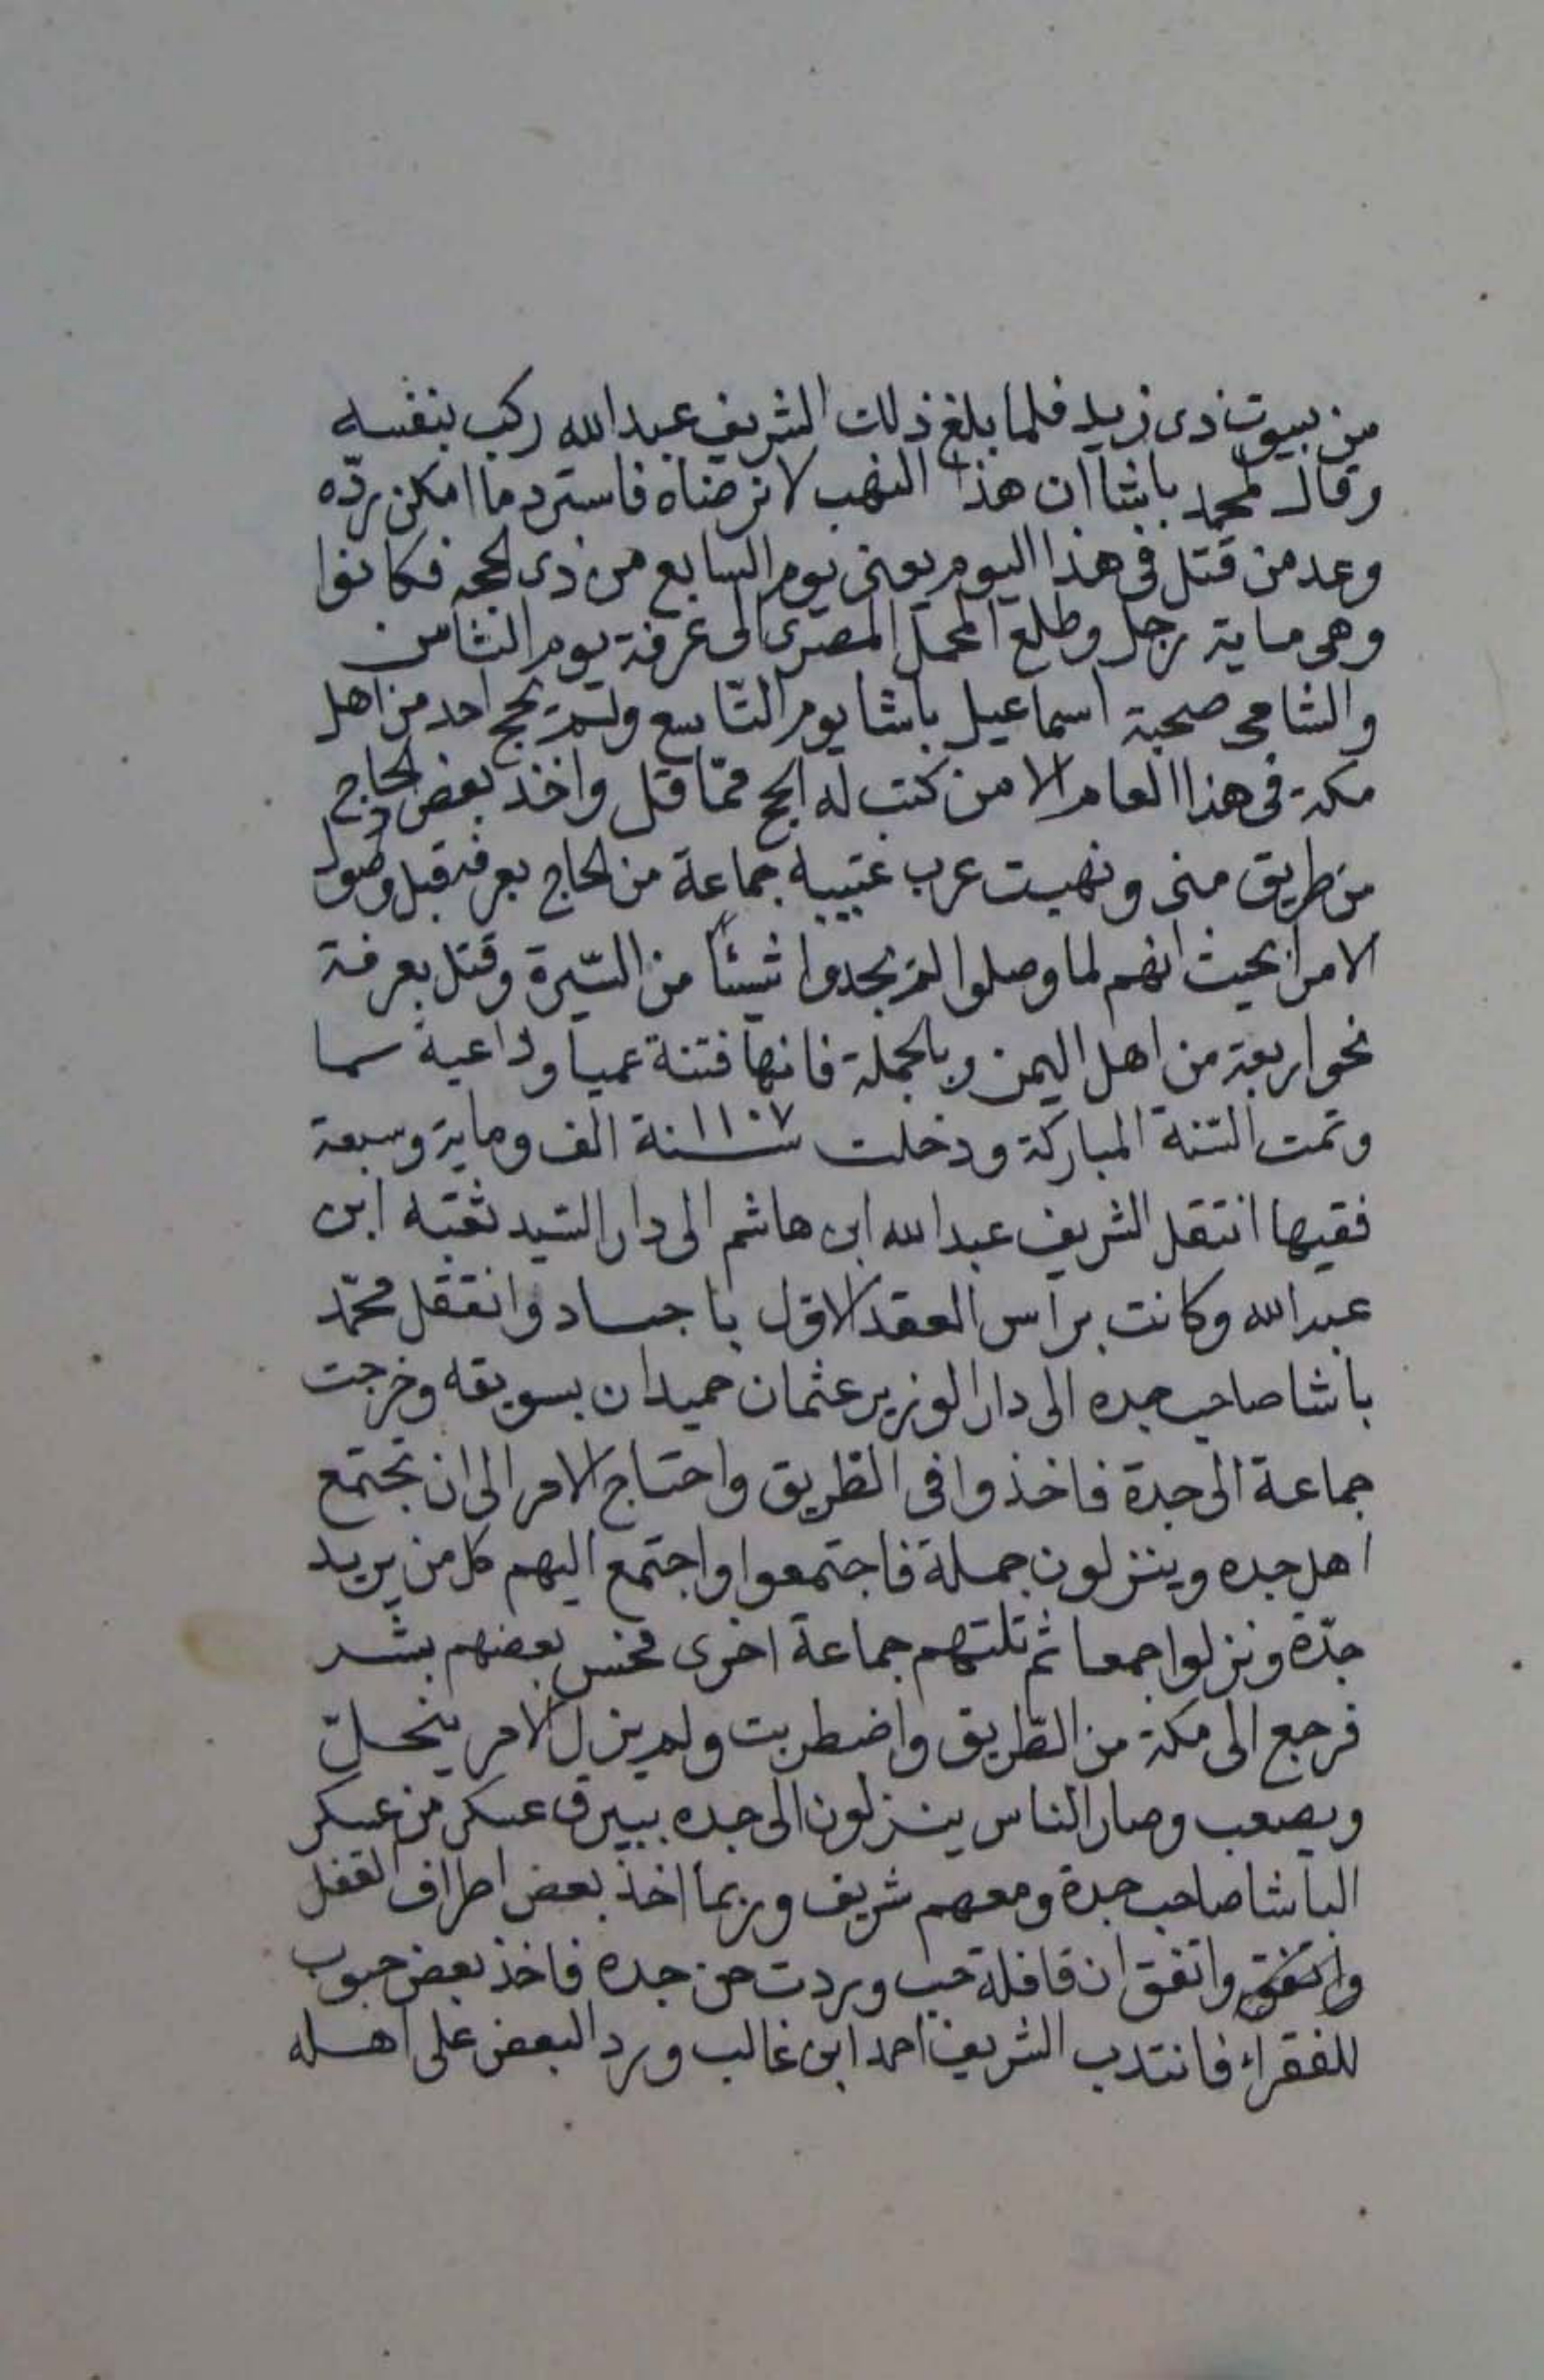 من بيوت ذى زيد فلما بلغ ذلك الشريف عبد الله ركب بنفسه
وقال لمحمد باشا ان هذا النهب لا نرضاه فاسترد ما امكن ردّه
وعد من قتل فى هذا اليوم يعنى يوم السابع من ذى الحجه فكانوا
وهى ماية رجل وطلع المحمل المصرى الى عرفة يوم الثامن
والشامى صحبة اسماعيل باشا يوم التّاسع ولم يحج احد من اهل
مكة فى هذا العام الا من كتب له الحج ممّا قل واخذ بعض الحاج
من طريق منى ونهبت عرب عتيبه جماعة من الحاج بعرفه قبل وصول
الامرا بحيث انهم لما وصلوا لم يجدوا شيئاً من السّيرة وقتل بعرفة
نحو اربعة من اهل اليمن وبالجملة فانها فتنة عميا وداعية سما
وتمت السّنة المباركة ودخلت سنة ١١٠٧ الف وماية وسبعة
ففيها انتقل الشريف عبد الله ابن هاشم الى دار السّيد ثقبه ابن
عبد الله وكانت براس العقد الاول باجساد وانتقل محمّد
باشا صاحب جده الى دار الوزير عثمان حميدان بسويقه وخرجت
جماعة الى جدة فاخذوا فى الطّريق واحتاج الامر الى ان تجتمع
اهل جده وينزلون جملة فاجتمعوا واجتمع اليهم كل من يريد
جدّة ونزلوا جمعا ثم تلتهم جماعة اخرى فحس بعضهم بشر
فرجع الى مكة من الطّريق واضطربت ولم يزل الامر ينحلّ
ويصعب وصار الناس ينزلون الى جده ببيرق عسكر من عسكر
الباشا صاحب جدة ومعهم شريف وربما اخذ بعض اطراف القفل
واتفق ان قافلة حب وردت من جده فاخذ بعض حبوب
للفقراء فانتدب الشريف احمد ابن غالب ورد البعض على اهله